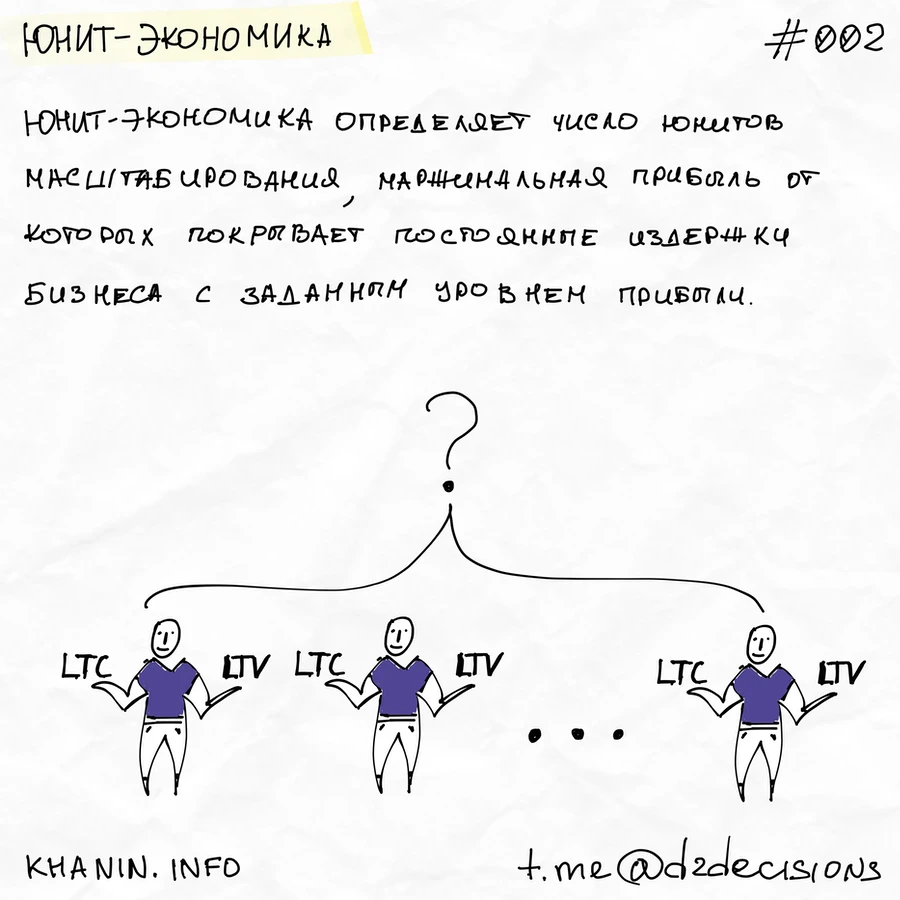 ЮНИТ-ЭКОНОМИКА
#002
ЮНИТ-ЭКОНОМИКА ОПРЕДЕЛЯЕТ ЧИСЛО ЮНИТОВ
МАСШТАБИРОВАНИЯ, МАРЖИНАЛЬНАЯ ПРИБЫЛЬ ОТ
КОТОРЫХ ПОКРЫВАЕТ ПОСТОЯННЫЕ ИЗДЕРЖКИ
БИЗНЕСА С ЗАДАННЫМ УРОВНЕМ ПРИБЫЛИ.
?
LTC LTV LTC LTV LTC LTV
...
KHANIN.INFO
t.me@d2decisions